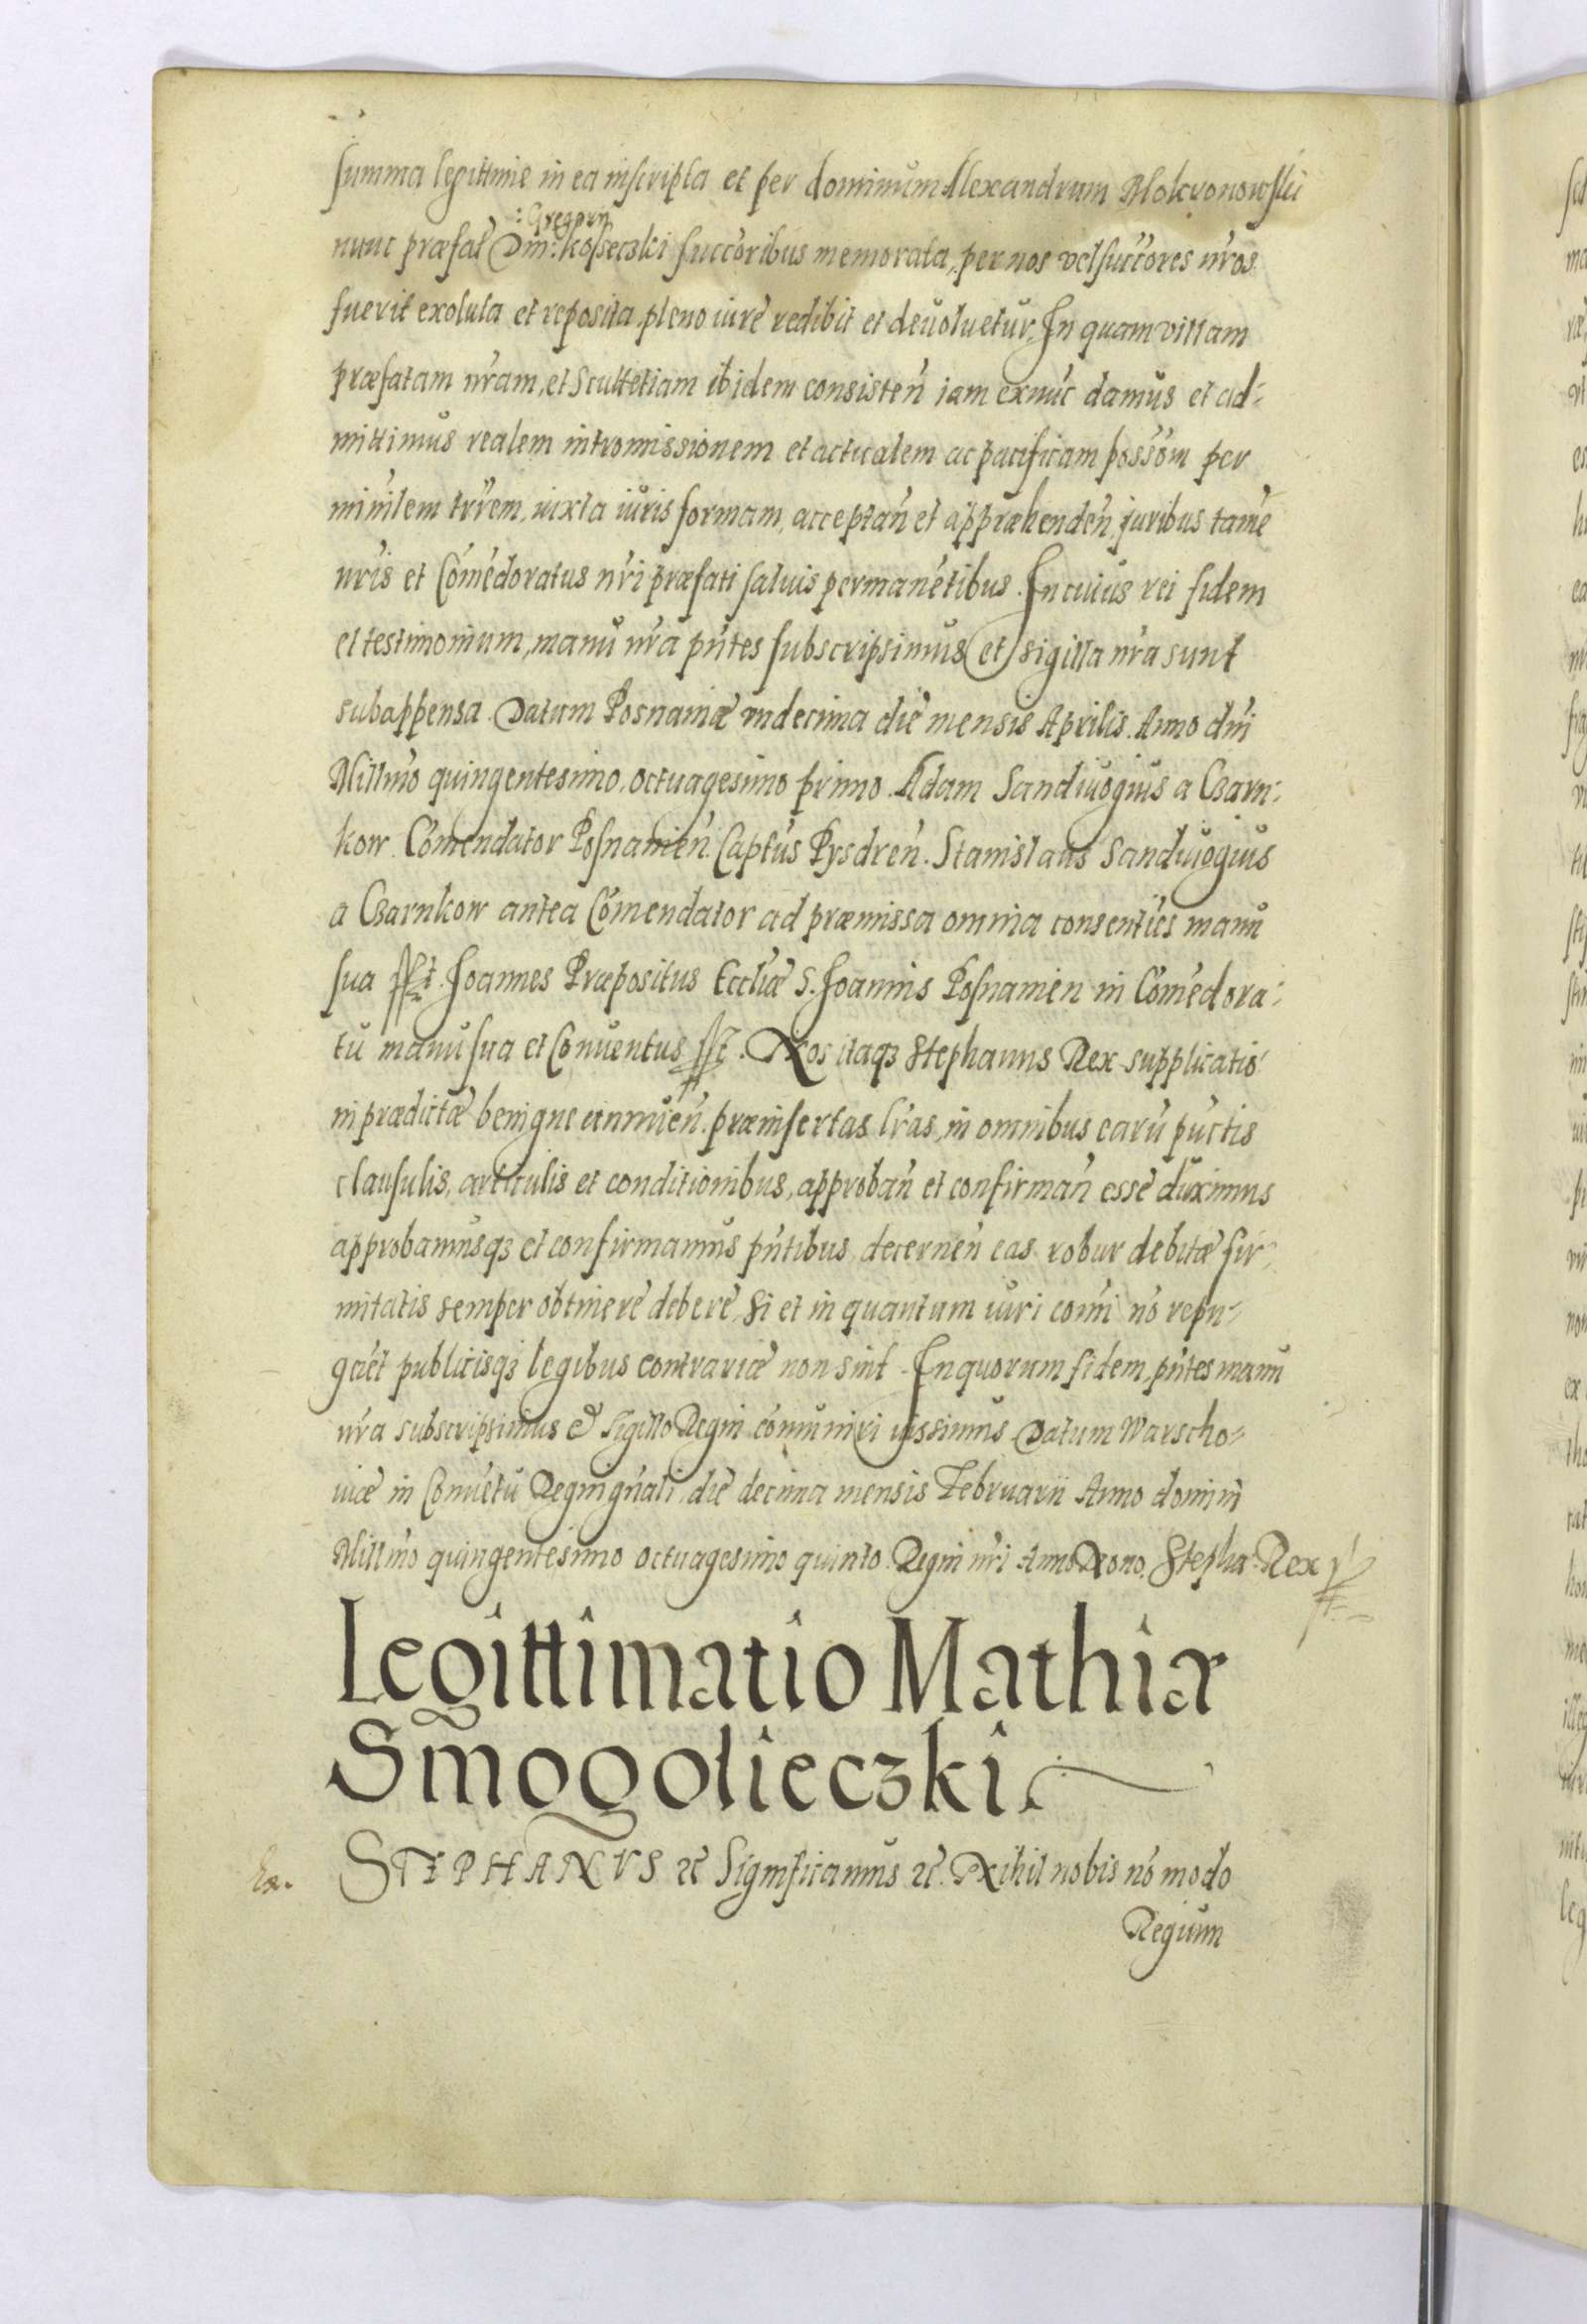 summa legittime in ea inscripta et per dominum Alexandrum Mokronowskii
: Gregorii
nunc præfat Dm̃: Kosseczki succ̃oribus memorata, per nos vel succ̃ores nr̃os
fuerit exoluta et reposita, pleno iure redibit et deuoluetur, In quam villam
præfatam nr̃am, et Scultetiam ibidem consisteñ iam exnũc damus et ad-
mittimus realem intromissionem et actualem ac pacificam poss̃om per
min̄lem tr̃rem, iuxta iuris formam, acceptañ et appræhendeñ, juribus tamẽ
nr̃is et Cõmẽdoratus nr̃i præfati saluis permanẽtibus. In cuius rei fidem
et testimonium, manu nr̃a pñtes subscripsimus et sigilla nr̃a sunt
subappensa. Datum Posnaniæ vndecima die mensis Aprilis. Anno dñi
Millm̃o quingentesimo, octuagesimo primo. Adam Sandiuogius a Czarn-
kow. Cõmendator Posnanieñ. Capt̃us Pysdreñ. Stanislaus Sandiuogius
a Czarnkow antea Cõmendator ad præmissa omnia consentiẽs manu
sua sst. Joannes Præpositus Eccliæ S. Joannis Posnanien in Cõmẽdora-
tu manu sua et Conuentus sst. Nos itaqꝫ Stephanus Rex supplicatio-
ni prædictæ benigne annueñ. præinsertas lr̃as, in omnibus earũ pũctis
clausulis, articulis et conditionibus, approbañ et confirmañ esse duximus
approbamusqꝫ et confirmamus pñtibus, decerneñ eas robur debitæ fir-
mitatis semper obtinere debere, si et in quantum iuri com̃i nõ repu-
gãt publicisqꝫ legibus contrariæ non sint. In quorum fidem, pñtes manu
nr̃a subscripsimus & sigillo Regni cõmuniri iussimus Datum Warscho-
uiæ in Conuẽtu Regni gñali, die decima mensis Februarii Anno domini
Millm̃o quingentesimo octuagesimo quinto. Regni nr̃i Anno Nono. Stepha. Rex
Legittimatio Mathiæ
Smogolieczki.
Ex.
STEPHANVS ꝛc̃ Significamus ꝛc̃. Nihil nobis nõ modo
Regium